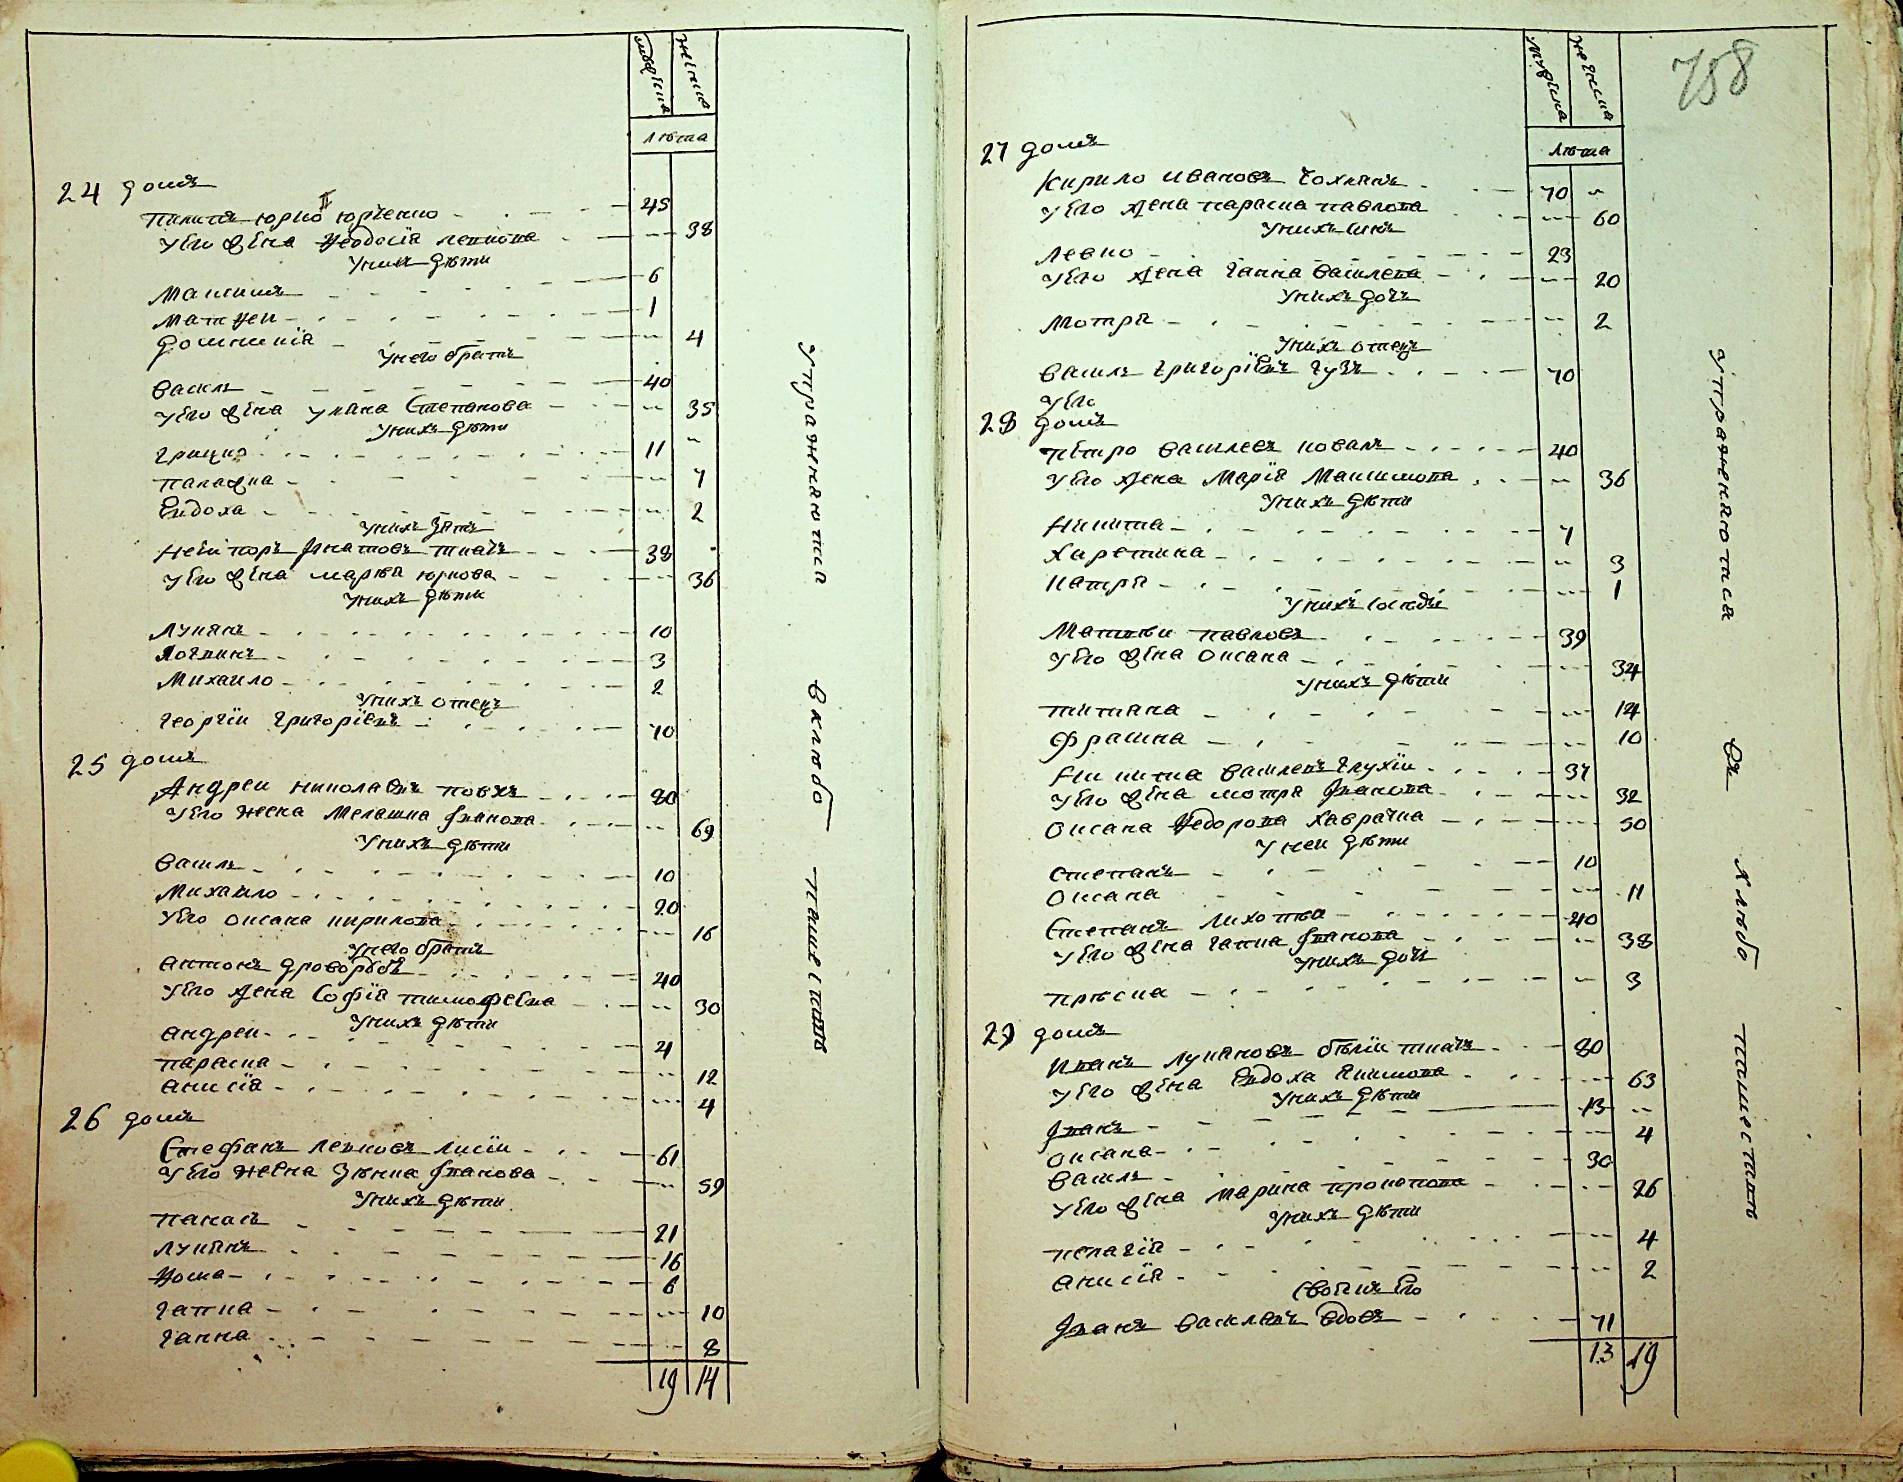 мужеска женска
лѣта
24 домъ
Пилипъ Юрко Юрченко 45
У его жена Ѳеодосія Левкова 38
У нихъ дѣти
Максимъ 6
Матѳеи 1
Домникія 4
У него братъ
Василь 40
У его жена Уляна Степанова 35
У нихъ дѣти
Грицко 11
Палажка 7
Евдоха 2
У нихъ зять
Несторъ Игнатовъ ткачъ 38
У его жена Марѣя Юркова 36
У нихъ дѣти
Лукянъ 10
Логвинъ 3
Михаило 2
У нихъ отецъ
Георгіи Григоріевъ 70
25 домъ
Андреи Николаевъ Повхъ 80
У его жена Мелашка Иванова 69
У нихъ дѣти
Василь 10
Михаило 20
У его Оксана Кирилова 16
У него братъ
Антонъ Дроворубъ 40
У его жена Софія Тимофеева 30
У нихъ дѣти
Андреи 4
Параска 12
Анисія 4
26 домъ
Стефанъ Левковъ Лисіи 61
У его жена Зѣнка Иванова 59
У нихъ дѣти
Панасъ 21
Лукянъ 16
Ѳома 6
Гапка 10
Ганна 8
19 14
Упражняются
в хлѣбо
пашествѣ
758
мужеска женска
лѣта
27 домъ
Кирило Ивановъ Чохлянъ 70
У его жена Параска Павлова 60
У нихъ синъ
Левко 23
У его жена Ганна Василева 20
У нихъ дочъ
Мотря 2
У нихъ отецъ
Василь Григоріевъ Гузъ 70
У его
28 домъ
Петро Василевъ Коваль 40
У его жена Марія Максимова 36
У нихъ дѣти
Никита 7
Харетина 3
Катря 1
У нихъ сосѣди
Матвѣи Павловъ 39
У его жена Оксана 34
У нихъ дѣти
Титяна 14
Фрашка 10
Никита Василевъ Глухіи 37
У его жена Мотря Иванова 32
Оксана Ѳедорова Хаврачка 50
У неи дѣти
Степанъ 10
Оксана 11
Степанъ Лихотва 40
У его жена Гапка Иванова 38
У нихъ дочъ
Прѣска 3
29 домъ
Иванъ Лукяновъ бѣліи ткачъ 80
У его жена Евдоха Якимова 63
У нихъ дѣти
Иванъ 13
Оксана 4
Василь 30
У его жена Марина Прокопова 26
У нихъ дѣти
Пелагія 4
Анисія 2
Своякъ его
Иванъ Василевъ вдовъ 71
13 19
Упражняются
въ
хлѣбо
пашествѣ